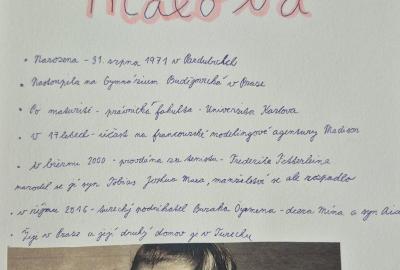 Macova
• Narozena - 31. srpna 1971 v Pardubicích
• Nastoupila na Gymnázium Budějovická v Praze
• Po maturitě - právnická fakulta - Univerzita Karlova
• V 17 letech - účast na francouzské modelingové agentury Madison
• V březnu 2000 - provdána za tenistu - Frederika Fetterleina
narodil se jí syn Tobias Joshua Maxa, manželství se ale rozpadlo
• v říjnu 2016 - turecký podnikatel Buraka Oymena - dcera Mina a syn
• Žije v Praze a její druhý domov je v Turecku